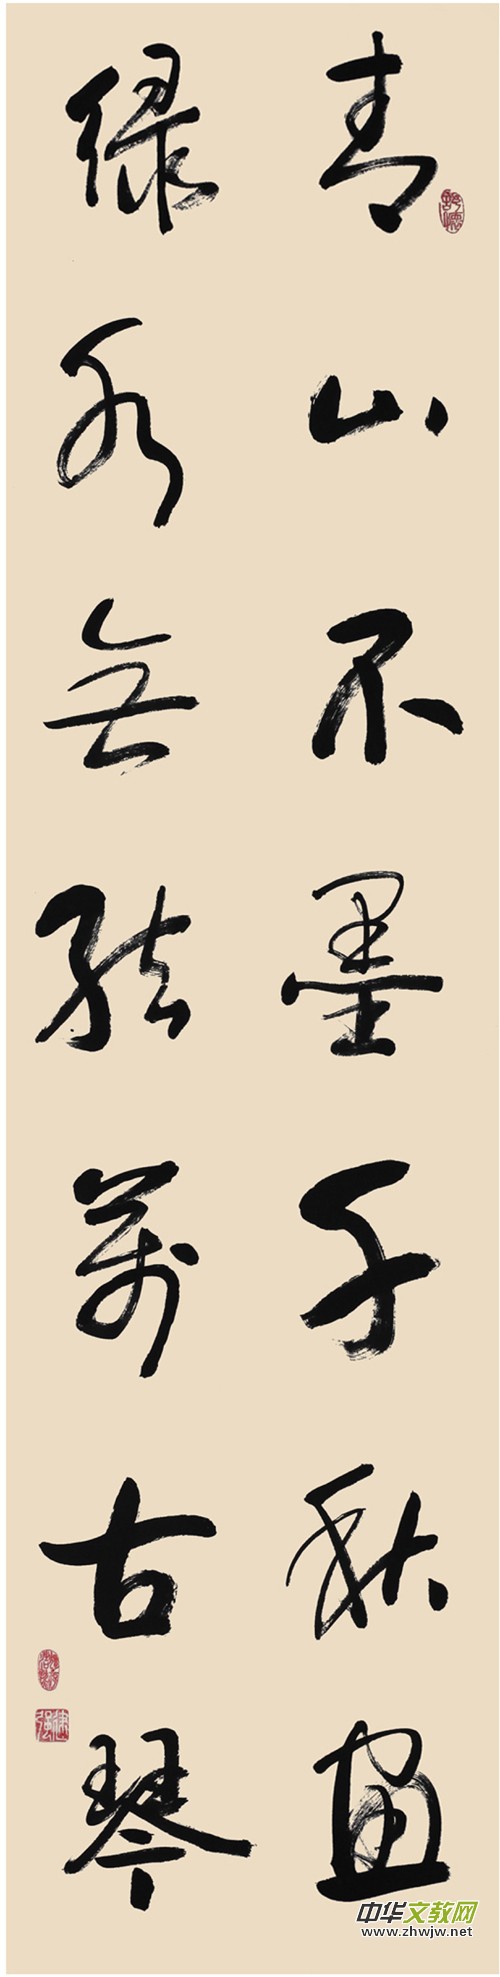 青山不墨千秋画
绿水无弦万古琴
中华文教网
www.zhwjw.net